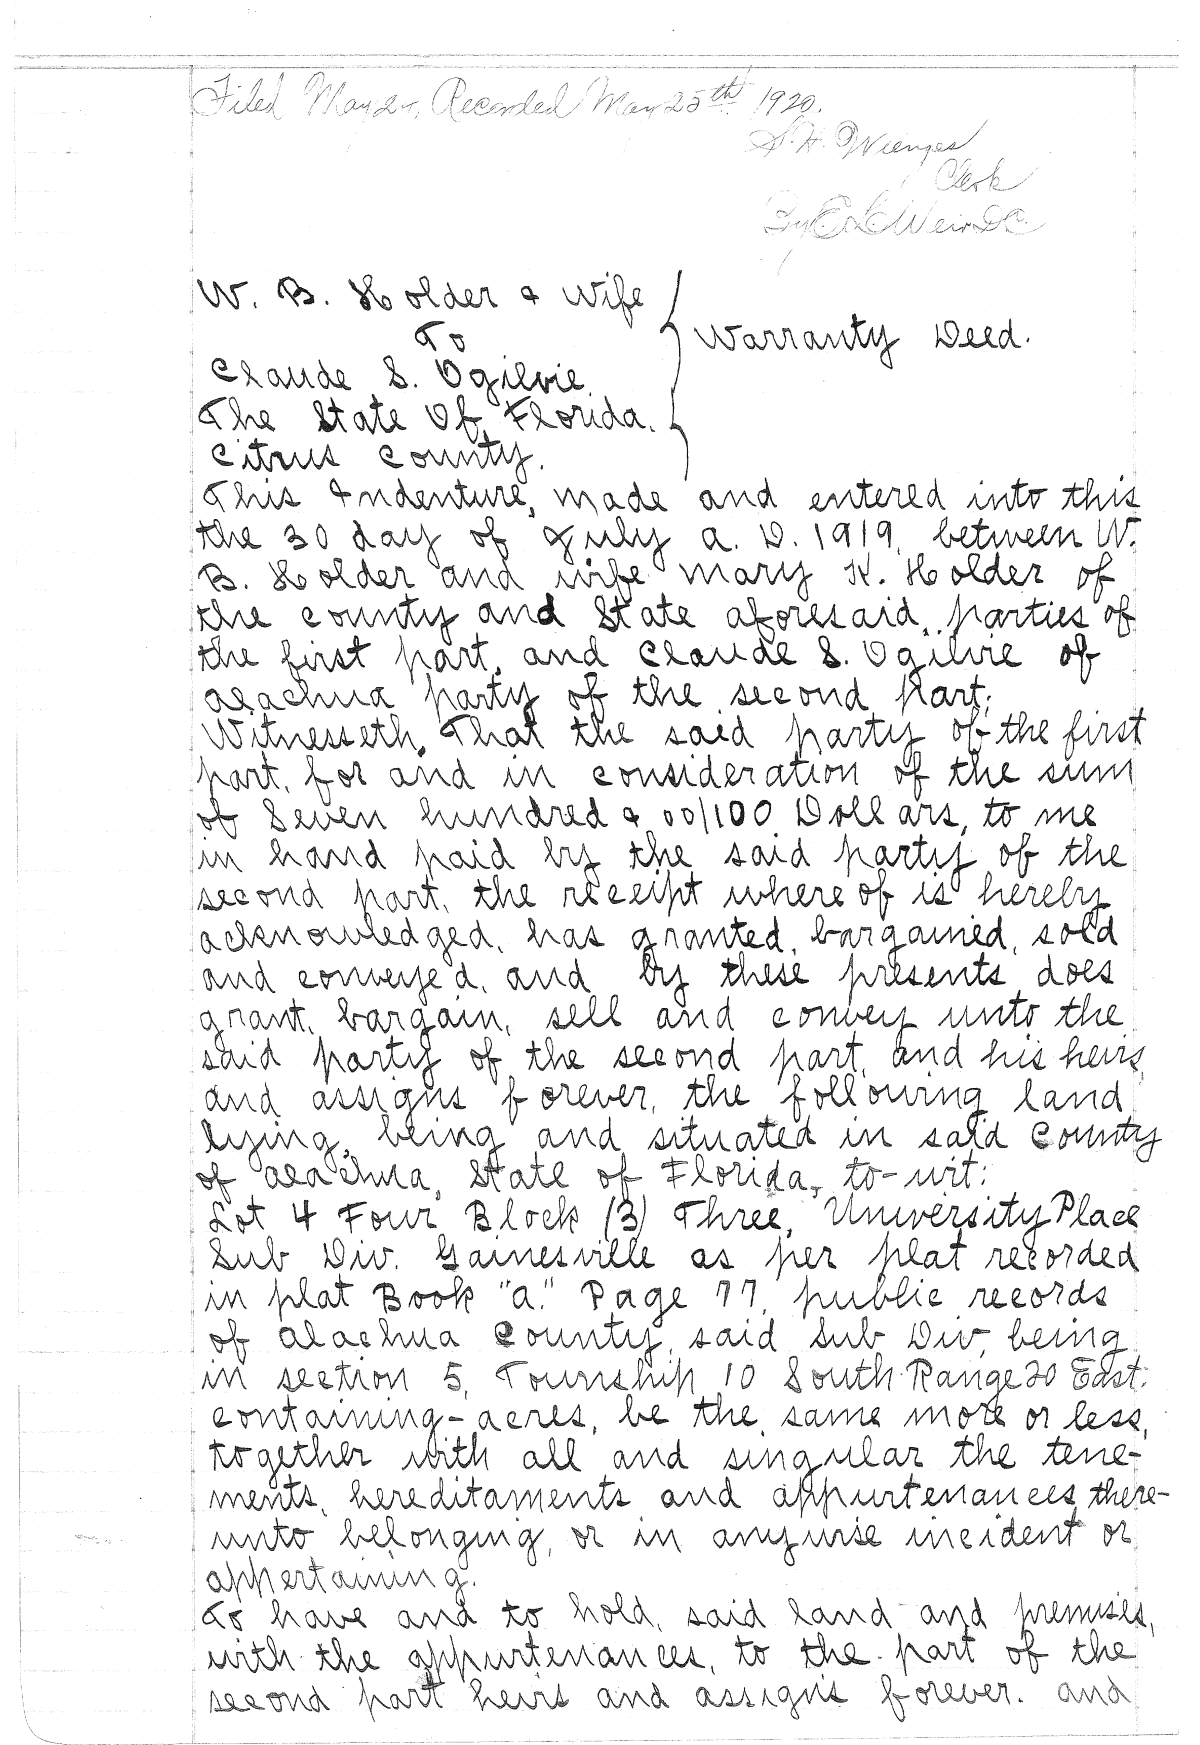 Filed May 24, Recorded May 25th 1920.
S. H. Wienges
Clerk
By E L Weir DC.
W. B. Holder & Wife
To
Claude S. Ogilvie.
Warranty Deed.
The State Of Florida.
Citrus County.
This Indenture, made and entered into this
the 30 day of July A. D. 1919, between W.
B. Holder and wife Mary K. Holder of
the county and State aforesaid, parties of
the first part, and Claude S. Ogilvie of
Alachua party of the second part;
Witnesseth, That the said party of the first
part, for and in consideration of the sum
of Seven hundred & 00/100 Dollars, to me
in hand paid by the said party of the
second part, the receipt where of is hereby
acknowledged, has granted, bargained, sold
and conveyed, and by these presents does
grant, bargain, sell and convey unto the
said party of the second part, and his heirs,
and assigns forever, the following land
lying, being and situated in said County
of Alachua, State of Florida, to-wit:
Lot 4 Four Block (3) Three, University Place
Sub Div. Gainesville as per plat recorded
in plat Book "A." Page 77, public records
of Alachua County, said Sub Div, being
in section 5, Township 10 South Range 20 East.
containing - acres, be the same more or less,
together with all and singular the tene-
ments, hereditaments and appurtenances, there-
unto belonging, or in anywise incident or
appertaining.
To have and to hold, said land and premises,
with the appurtenances, to the part of the
second part heirs and assigns forever. and